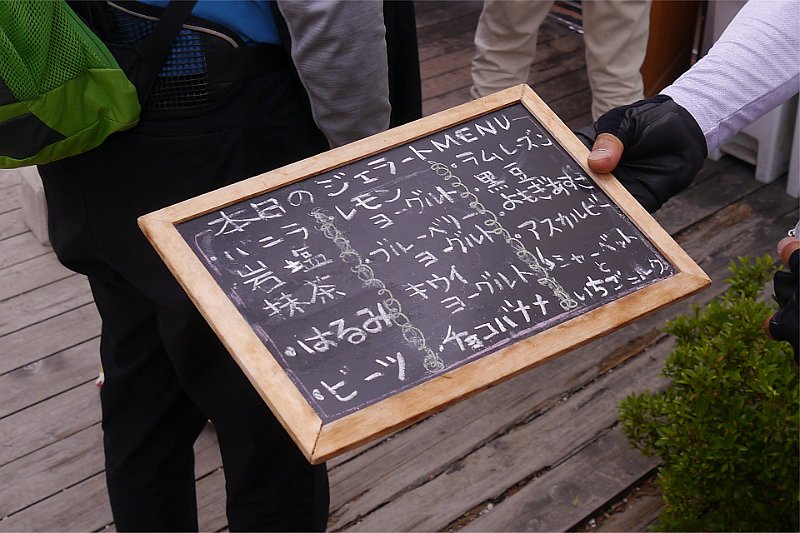 本日のジェラートMENU
バニラ
・岩塩
・抹茶
・はるみ
・ビーツ
・レモン
ヨーグルト
・ブルーベリー
ヨーグルト
・キウイ
ヨーグルト
・チョコバナナ
・ラムレーズン
・黒豆
・よもぎあずき
・アスカルビー
シャーベット
と
いちごミルク